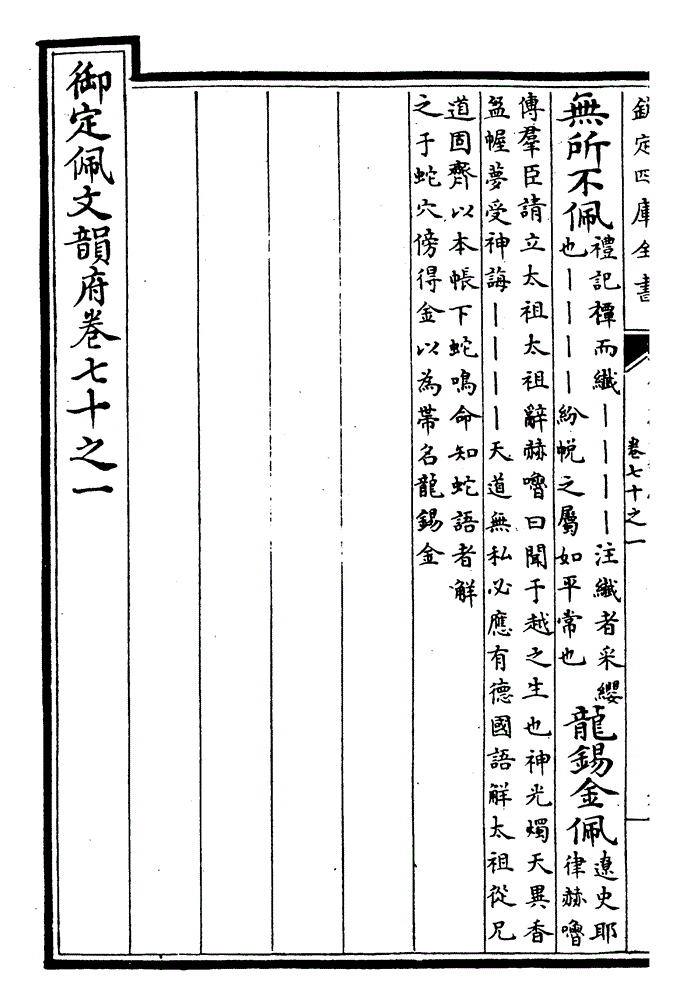 欽定四庫全書
卷七十之一
無所不佩
禮記禫而纖丨丨丨丨注纖者采纓
也丨丨丨丨紛帨之屬如平常也
龍錫金佩
遼史耶
律赫嚕
傳羣臣請立太祖太祖辭赫嚕曰聞于越之生也神光燭天異香
盈幄夢受神誨丨丨丨丨天道無私必應有德國語解太祖從兄
道固齊以本帳下蛇鳴命知蛇語者解
之于蛇穴傍得金以為帶名龍錫金
御定佩文韻府卷七十之一